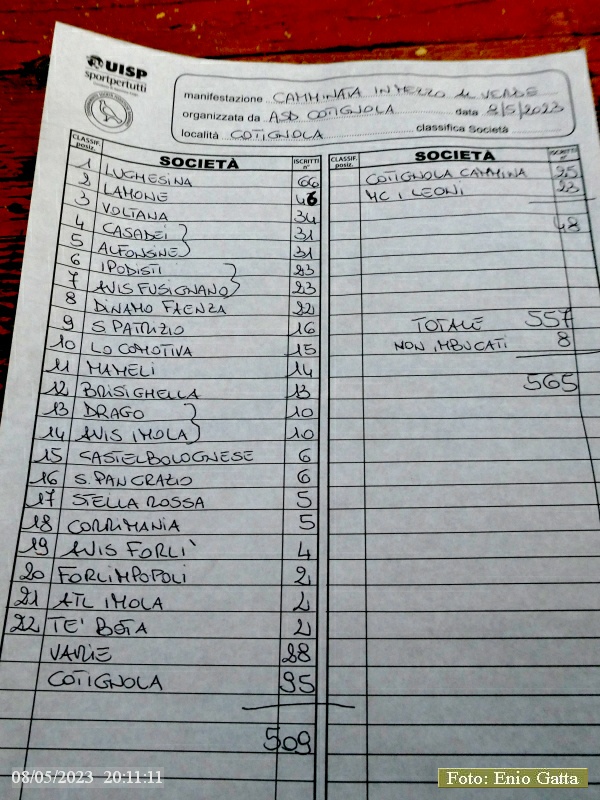 UISP
sportpertutti
manifestazione CAMMINATA IN MEZZO AL VERDE
organizzata da ASD COTIGNOLA data 8/5/2023
località COTIGNOLA classifica Società
CLASSIF. posiz. SOCIETÀ ISCRITTI n°
1 LUGHESINA 66
2 LAMONE 46
3 VOLTANA 34
4 CASADEI 31
5 ALFONSINE 31
6 IPODISTI 23
7 AVIS FUSIGNANO 23
8 DINAMO FAENZA 22
9 S. PATRIZIO 16
10 LOCOMOTIVA 15
11 MAMELI 14
12 BRISIGHELLA 13
13 DRAGO 10
14 AVIS IMOLA 10
15 CASTELBOLOGNESE 6
16 S. PANCRAZIO 6
17 STELLA ROSSA 5
18 CORRIMANIA 5
19 AVIS FORLI' 4
20 FORLIMPOPOLI 2
21 ATL IMOLA 2
22 TE' BOTA 2
VARIE 28
COTIGNOLA 95
509
CLASSIF. posiz. SOCIETÀ ISCRITTI n°
COTIGNOLA CAMMINA 25
MC I LEONI 23
48
TOTALE 557
NON IMBUCATI 8
565
08/05/2023 20:11:11
Foto: Enio Gatta